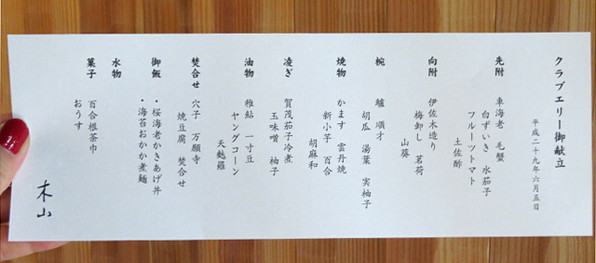 クラブエリー御献立
平成二十九年六月五日
先附
車海老 毛蟹
白ずいき 水茄子
フルーツトマト
土佐酢
向附
伊佐木造り
梅卸し 茗荷
山葵
椀
鱸 順才
胡瓜 湯葉 実柚子
焼物
かます 雲丹焼
新小芋 百合
胡麻和
凌ぎ
賀茂茄子冷煮
玉味噌 柚子
油物
稚鮎 一寸豆
ヤングコーン
天麩羅
焚合せ
穴子 万願寺
焼豆腐 焚合せ
御飯
・桜海老かきあげ丼
・海苔おかか煮麺
水物
菓子
百合根茶巾
おうす
木山